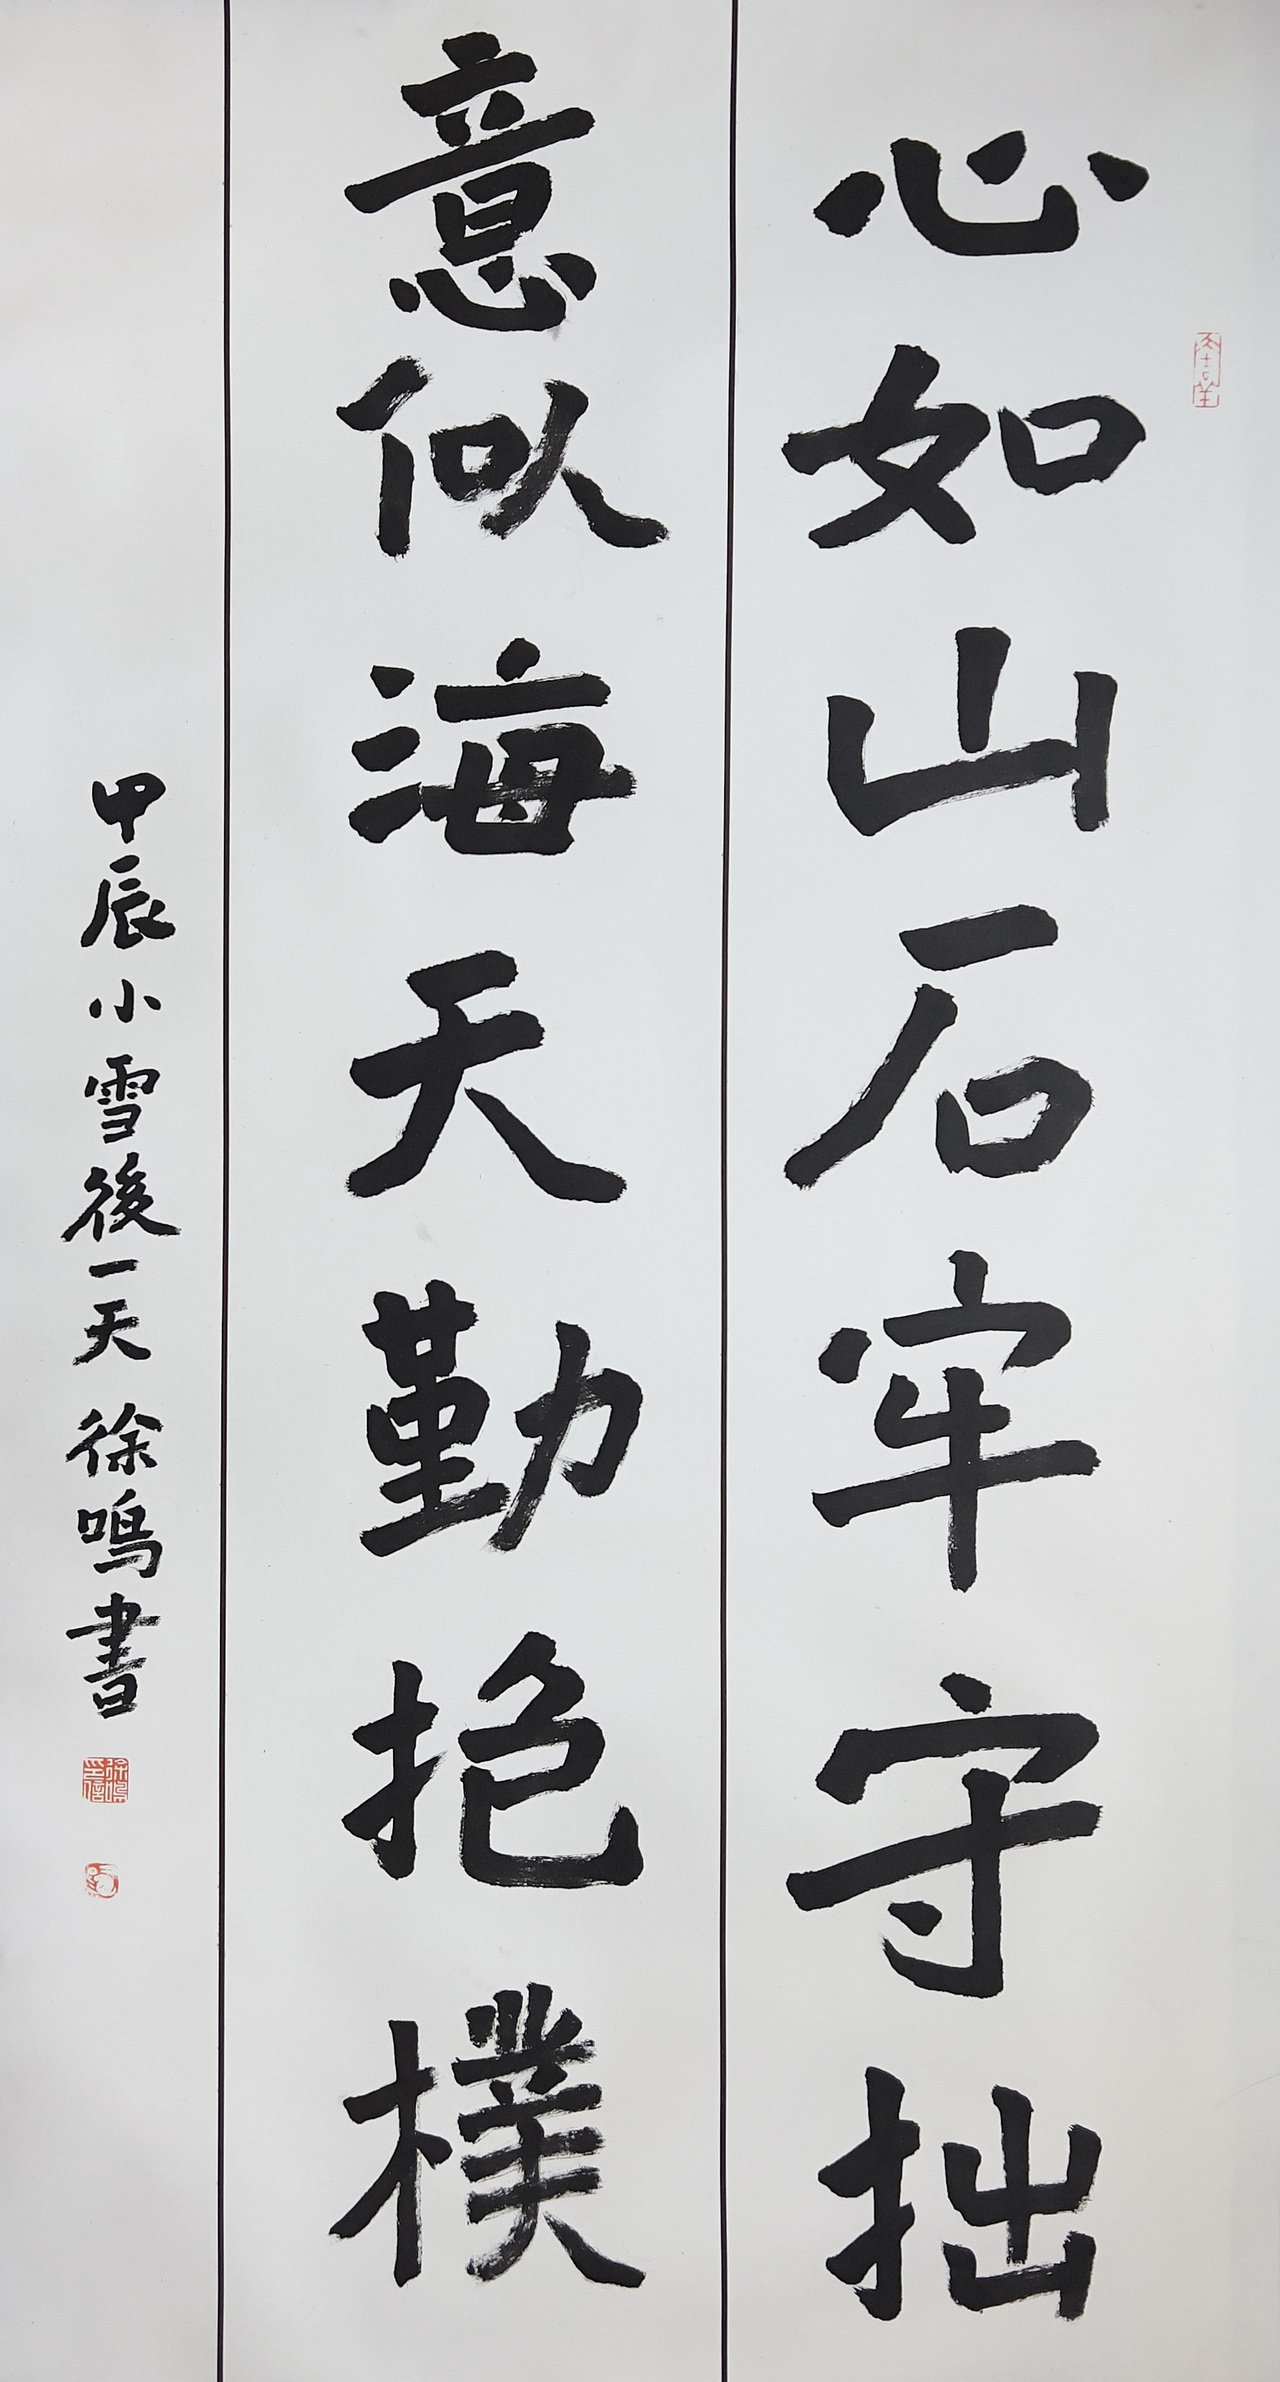 心如山石牢守拙
意似海天勤抱樸
甲辰小雪後一天 徐鳴書
徐鳴印信